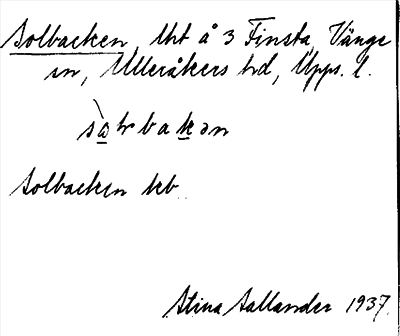 Solbacken, lht å 3 Finsta, Vänge
sn, Ulleråkers hd, Upps. l.
sòlbakən
Solbacken kb
Stina Sallander 1937.